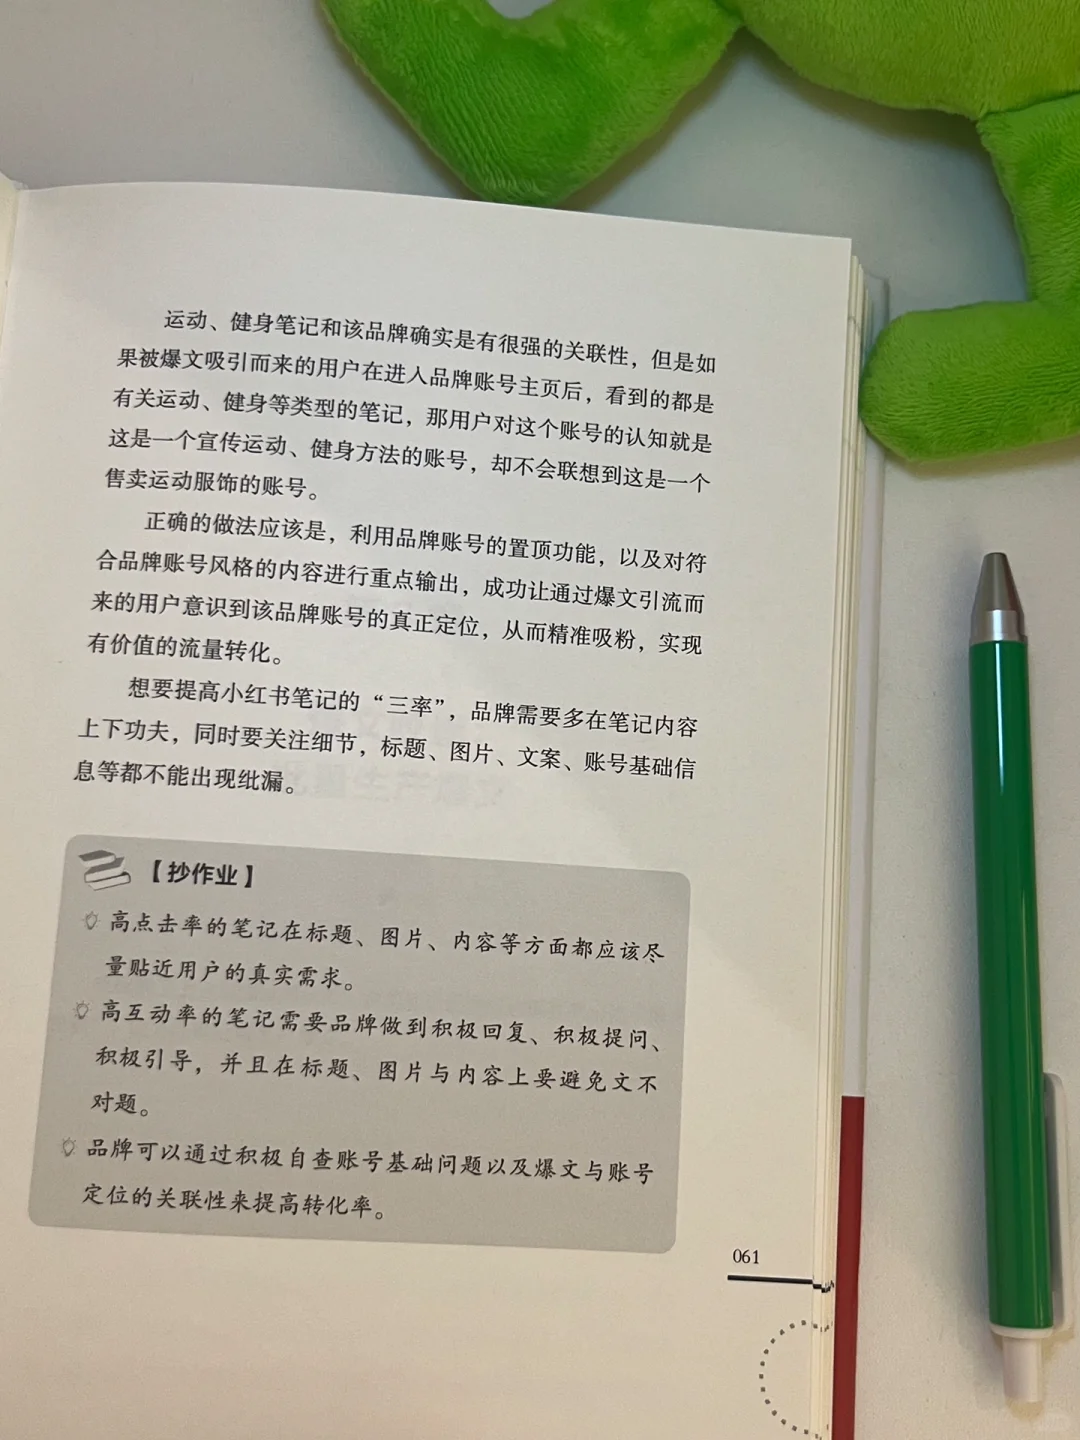 运动、健身笔记和该品牌确实是有很强的关联性，但是如
果被爆文吸引而来的用户在进入品牌账号主页后，看到的都是
有关运动、健身等类型的笔记，那用户对这个账号的认知就是
这是一个宣传运动、健身方法的账号，却不会联想到这是一个
售卖运动服饰的账号。
正确的做法应该是，利用品牌账号的置顶功能，以及对符
合品牌账号风格的内容进行重点输出，成功让通过爆文引流而
来的用户意识到该品牌账号的真正定位，从而精准吸粉，实现
有价值的流量转化。
想要提高小红书笔记的“三率”，品牌需要多在笔记内容
上下功夫，同时要关注细节，标题、图片、文案、账号基础信
息等都不能出现纰漏。
【抄作业】
高点击率的笔记在标题、图片、内容等方面都应该尽
量贴近用户的真实需求。
高互动率的笔记需要品牌做到积极回复、积极提问、
积极引导，并且在标题、图片与内容上要避免文不
对题。
品牌可以通过积极自查账号基础问题以及爆文与账号
定位的关联性来提高转化率。
061